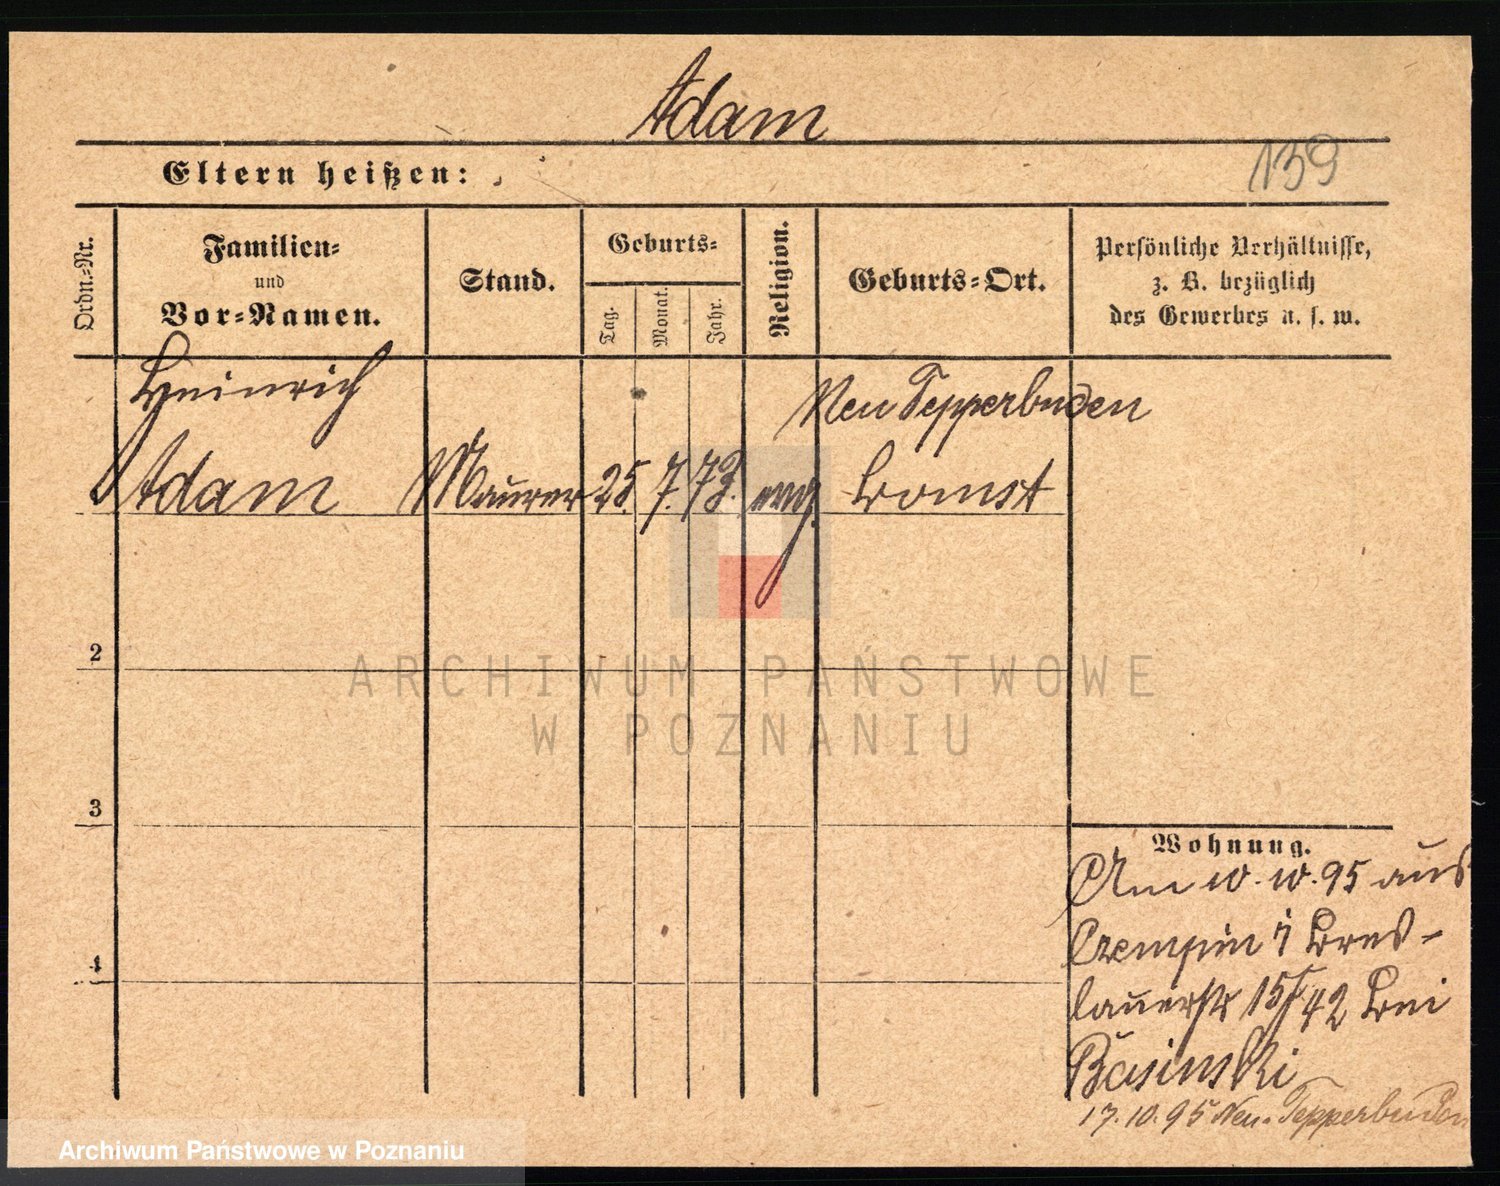 Adam
Eltern heißen:
139
Ordn.=Nr.
Familien=
und
Vor=Namen.
Stand.
Geburts=
Tag.
Monat.
Jahr.
Religion.
Geburts=Ort.
Persönliche Verhältnisse,
z. B. bezüglich
des Gewerbes u. s. w.
Heinrich
Adam
Maurer
25.
7.
73.
evg.
Neu Tepperbuden
Bomst
2
3
4
Wohnung.
Am 10. 10. 95 aus
Czempin i Bres-
lauerstr 15/42 bei
Basinski
17. 10. 95 Neu-Tepperbuden
ARCHIWUM PAŃSTWOWE
W POZNANIU
Archiwum Państwowe w Poznaniu